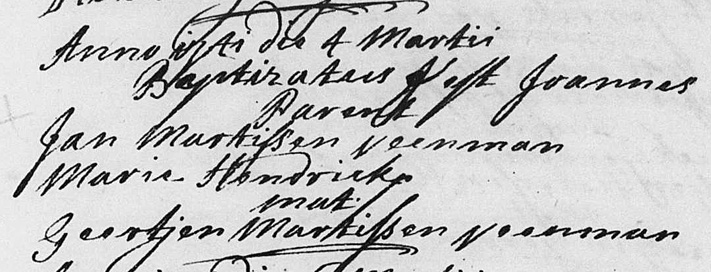 Anno isti die 4 Martii
Baptizatus est Joannes
Parent
Jan Martissen veenman
Marie Hendricks
mat
Geertjen Martissen veenman